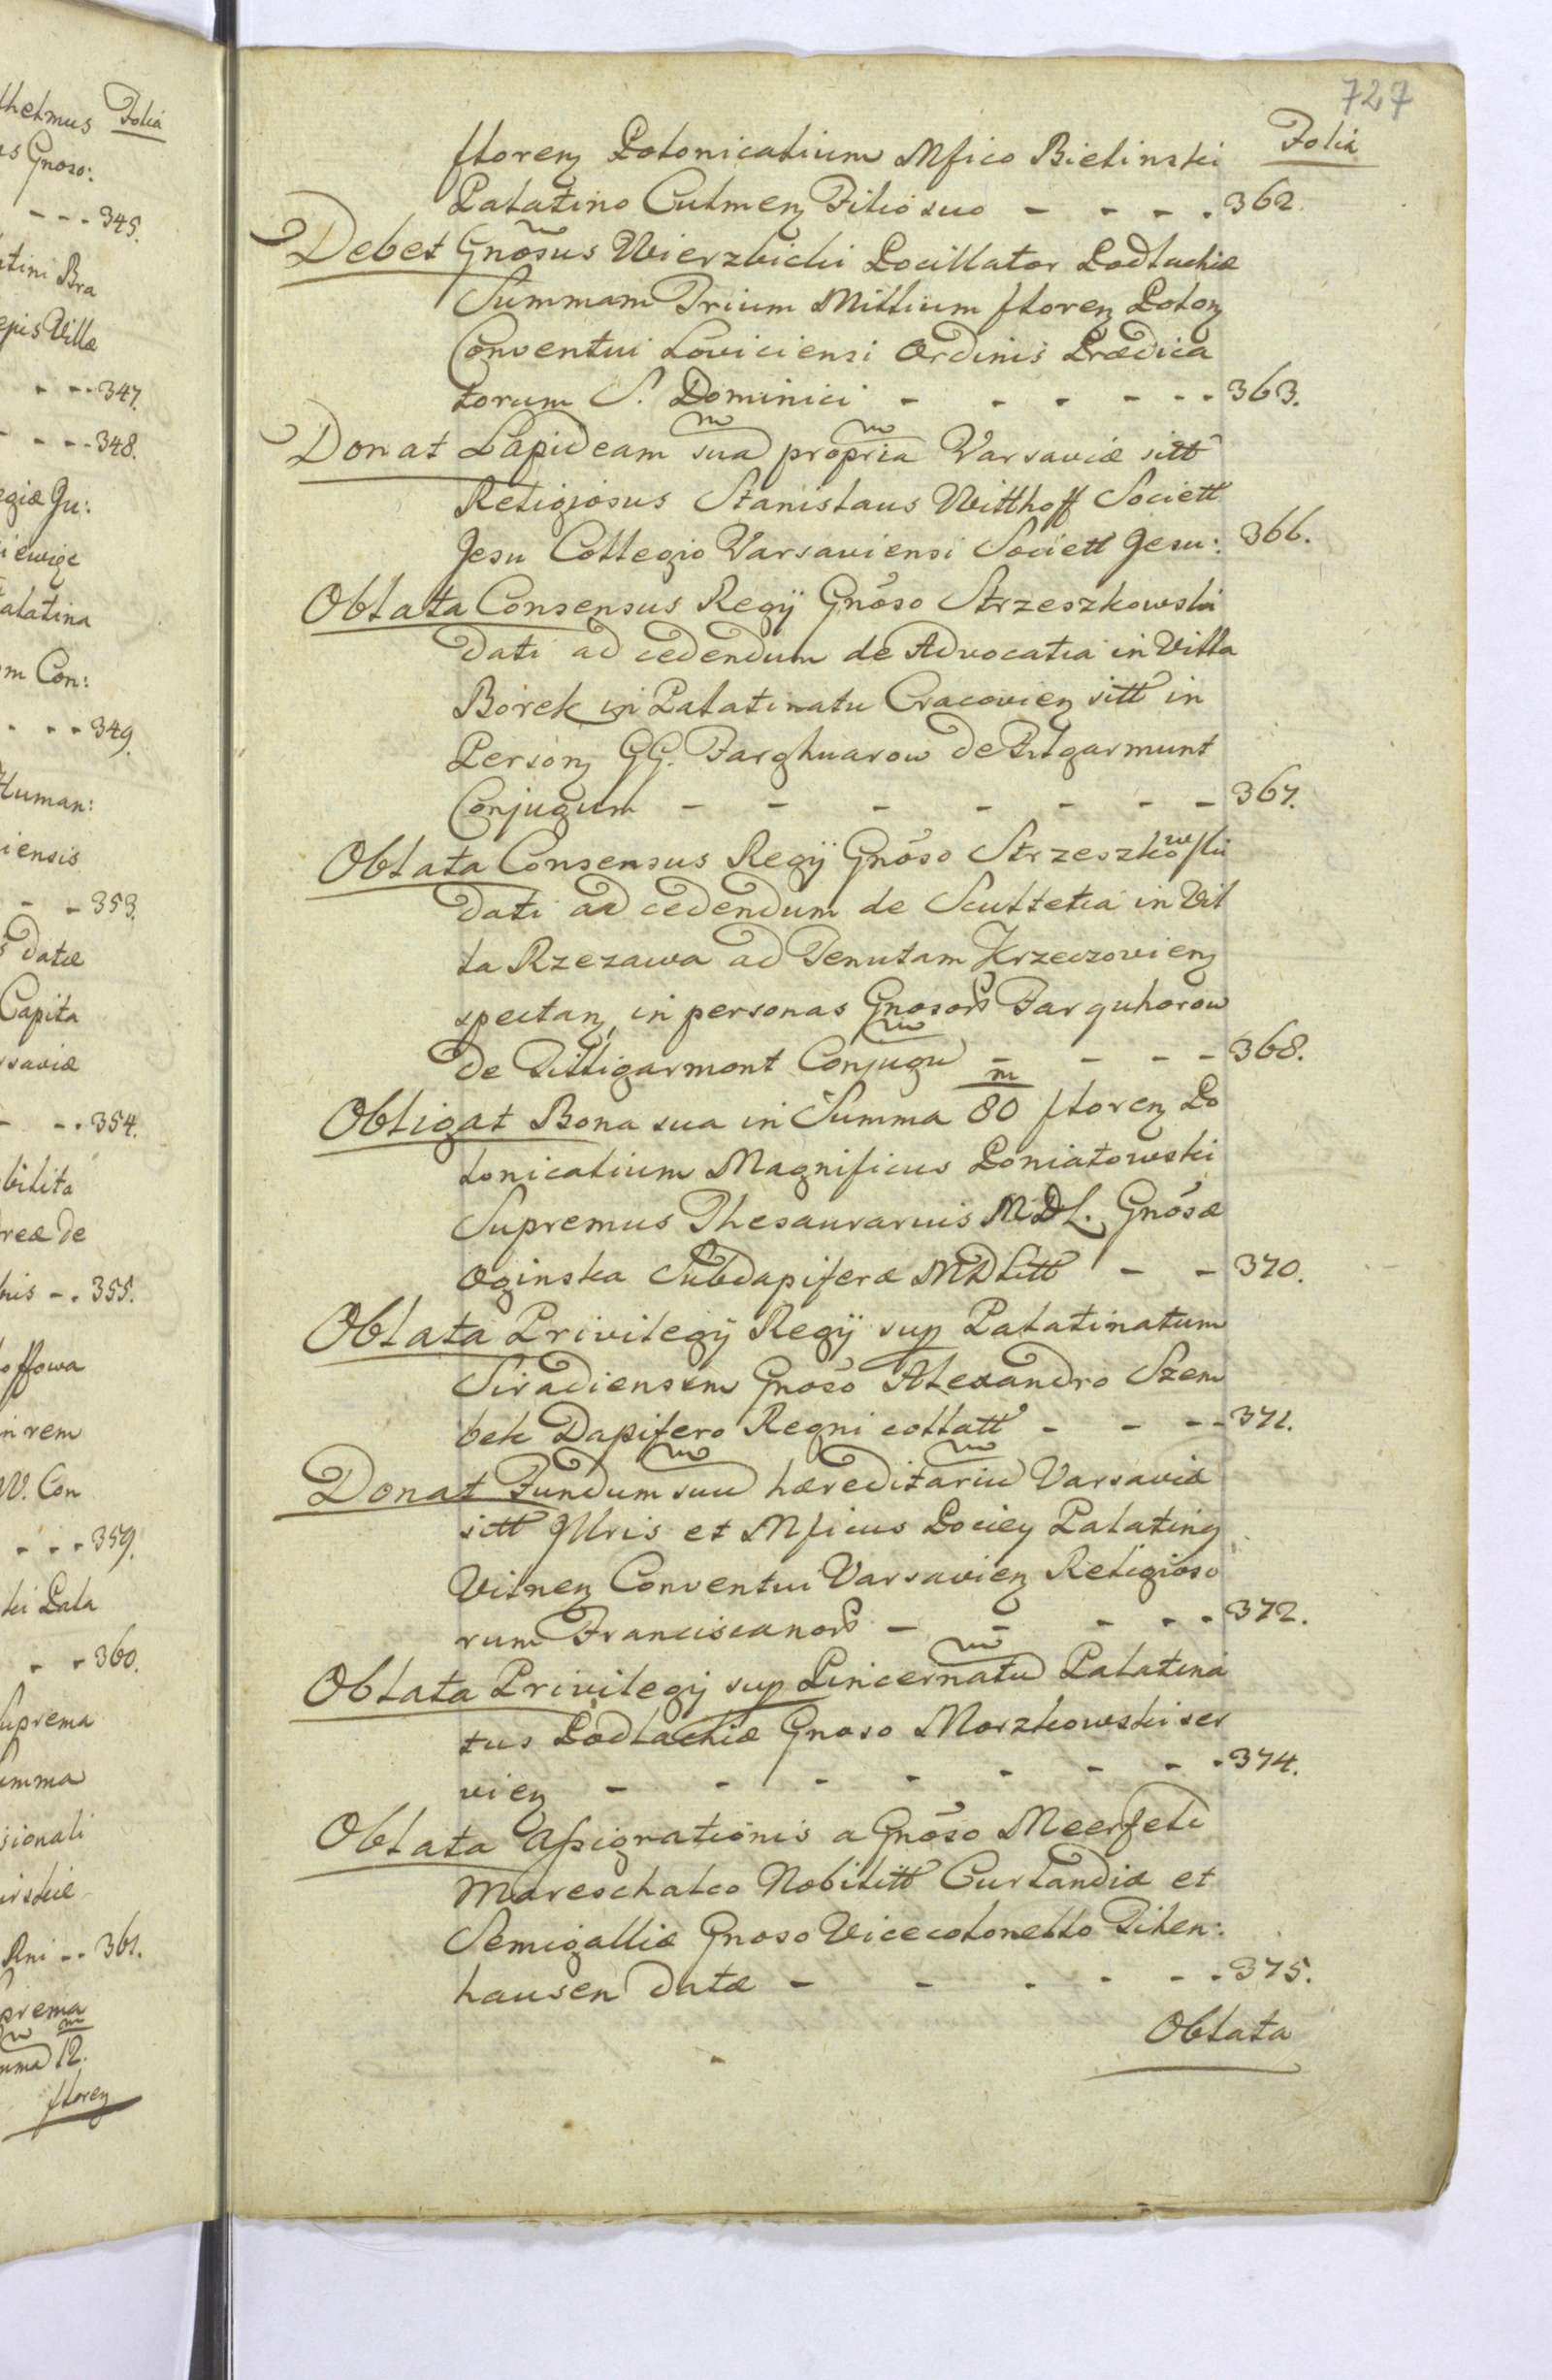 thelmus Folia
Gnoso:
- - - 345.
atini Bra
epis Villæ
- - - 347.
- - - 348.
egiæ Ju:
alatina
m Con:
- - - 349.
Human:
iensis
- - 353.
datæ
Capita
rsaviæ
- - 354.
bilita
reæ de
nis - . 355.
offowa
in rem
W. Con
- - - 359.
ki Pala
- - 360.
Suprema
umma
sionali
Rni - - 361.
prema
mma 12.
floreꝫ
727
Folia
floreꝫ Polonicalium Mfico Bielinski
Palatino Culmeꝫ Filio suo - - - - 362.
Debet Gnosus Wierzbicki Pocillator Podlachiæ
Summam Trium Millium floreꝫ Poloꝫ
Conventui Loviciensi Ordinis Prædica
torum S. Dominici - - - - - - 363.
Donat Lapideam sua propria Varsaviæ sitt
Religiosus Stanislaus Witthoff Societt
Jesu Collegio Varsaviensi Societt Jesu: 366.
Oblata Consensus Regij Gnoso Strzeszkowski
dati ad cedendum de Advocatia in Villa
Borek in Palatinatu Cracovieꝫ sitt in
Persoꝫ GG. Farghuarow de Filgarmunt
Conjugum - - - - - - - 367.
Oblata Consensus Regij Gnoso Strzeszkowski
dati ad cedendum de Scultetia in Vil
la Rzezawa ad Tenutam Krzeczovieꝫ
spectaꝫ, in personas Gnosor Farquhorow
de Filligarmont Conjugu - - - - 368.
Obligat Bona sua in Summa 80 m floreꝫ Po
lonicalium Magnificus Poniatowski
Supremus Thesaurarius MDL. Gnosæ
Oginska Subdapiferæ MDLitt - - 370.
Oblata Privilegij Regij sup Palatinatum
Siradiensem Gnoso Alexandro Szem
bek Dapifero Regni collatt - - - - 371.
Donat Fundum suu hæreditariu Varsaviæ
sitt Jllris et Mficus Pociey Palatinꝫ
Vilneꝫ Conventui Varsavieꝫ Religioso
rum Franciscanor - - - - - 372.
Oblata Privilegij sup Pincernatu Palatina
tus Podlachiæ Gnoso Morzkowski ser
vieꝫ - - - - - - - - 374.
Oblata Assignationis a Gnoso Meerfeld
Mareschalco Nobilitt Curlandiæ et
Semigalliæ Gnoso Vicecolonello Tiken:
hausen datæ - - - - - - 375.
Oblata